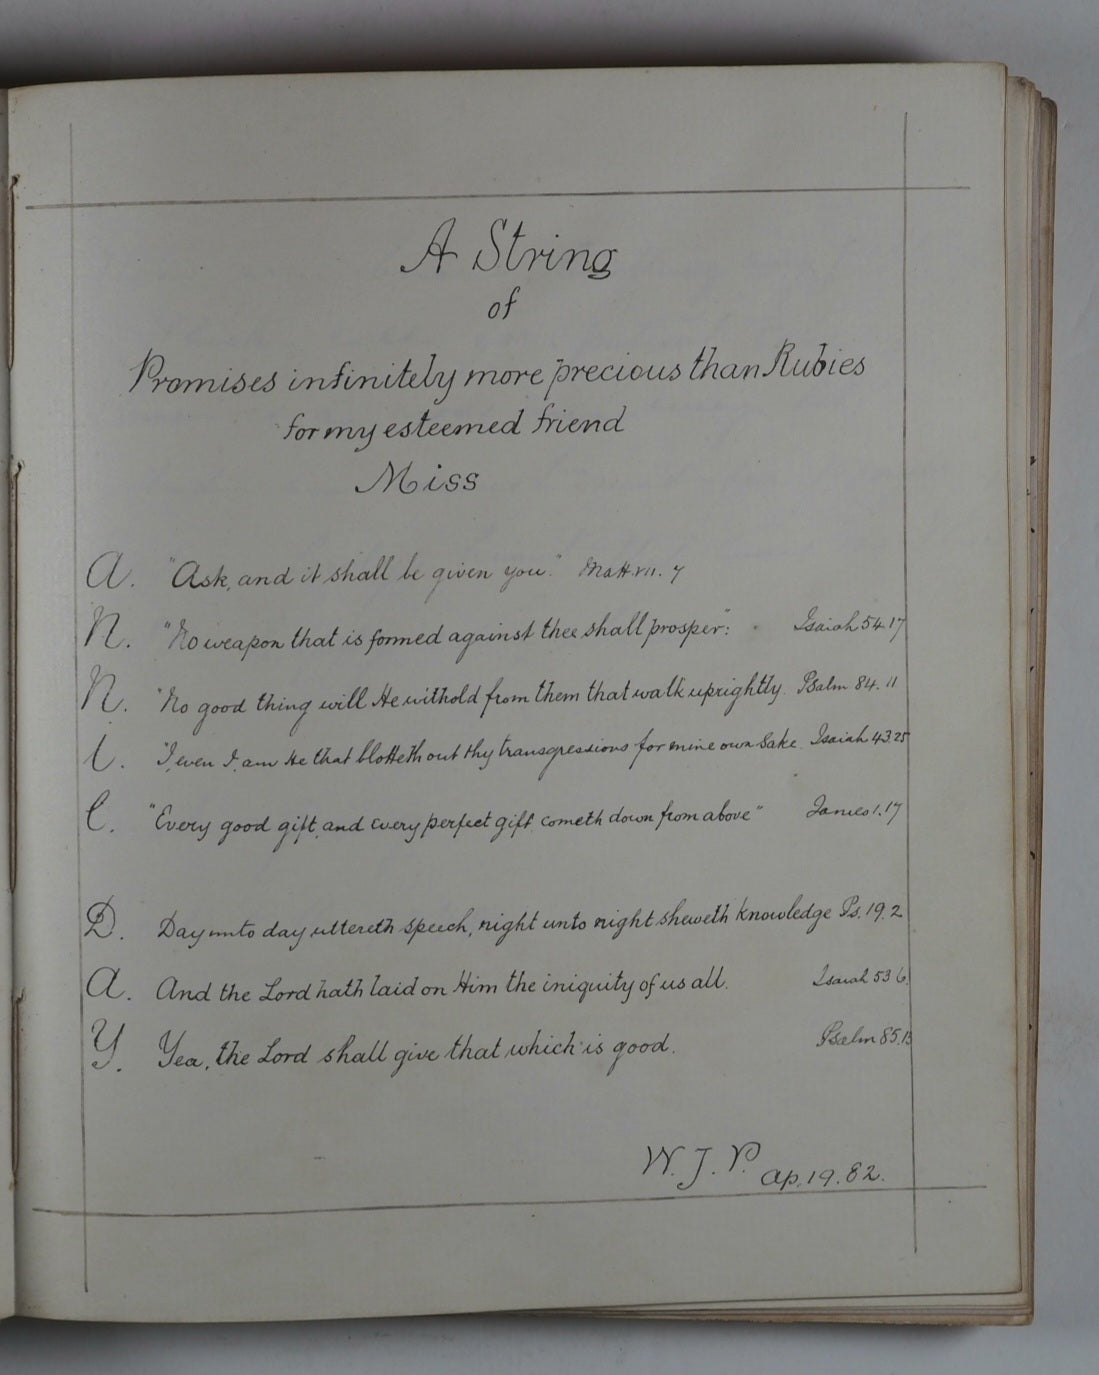 A String
of
Promises infinitely more precious than Rubies
for my esteemed friend
Miss
A. "Ask, and it shall be given you." Matt. VII. 7
N. "No weapon that is formed against thee shall prosper": Isaiah 54.17
N. "No good thing will He withold from them that walk uprightly. Psalm 84.11
I. "I, even I, am He that blotteth out thy transgressions for mine own Sake. Isaiah 43.25
E. "Every good gift, and every perfect gift, cometh down from above" James 1.17
D. Day unto day uttereth speech, night unto night sheweth knowledge Ps. 19.2
A. And the Lord hath laid on Him the iniquity of us all. Isaiah 53 6.
Y. Yea, the Lord shall give that which is good. Psalm 85.
W. J. P. Ap. 19. 82.